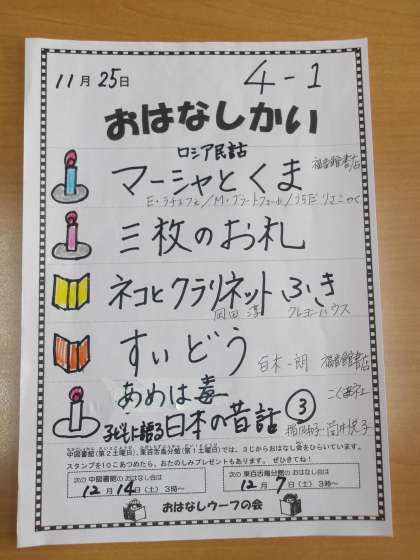 11月25日
4-1
おはなしかい
ロシア民話
マーシャとくま
福音館書店
E・ラチョフ/M・ブラートフ/うちだ りさこ やく
三枚のお札
ネコとクラリネットふき
岡田 淳 クレヨンハウス
すいどう
白木一朗 福音館書店
あめは毒
こぐま社
子どもに語る日本の昔話③
稲田和子・筒井悦子
中図書館(第2土曜日)、東百舌鳥分館(第1土曜日)では、3じからおはなし会をひらいています。
スタンプを10こあつめたら、おたのしみプレゼントもあります。ぜひきてね!
次の 中図書館の おはなし会は
12月14日(土)3時~
次の 東百舌鳥分館の おはなし会は
12月7日(土)3時~
おはなしウーフの会